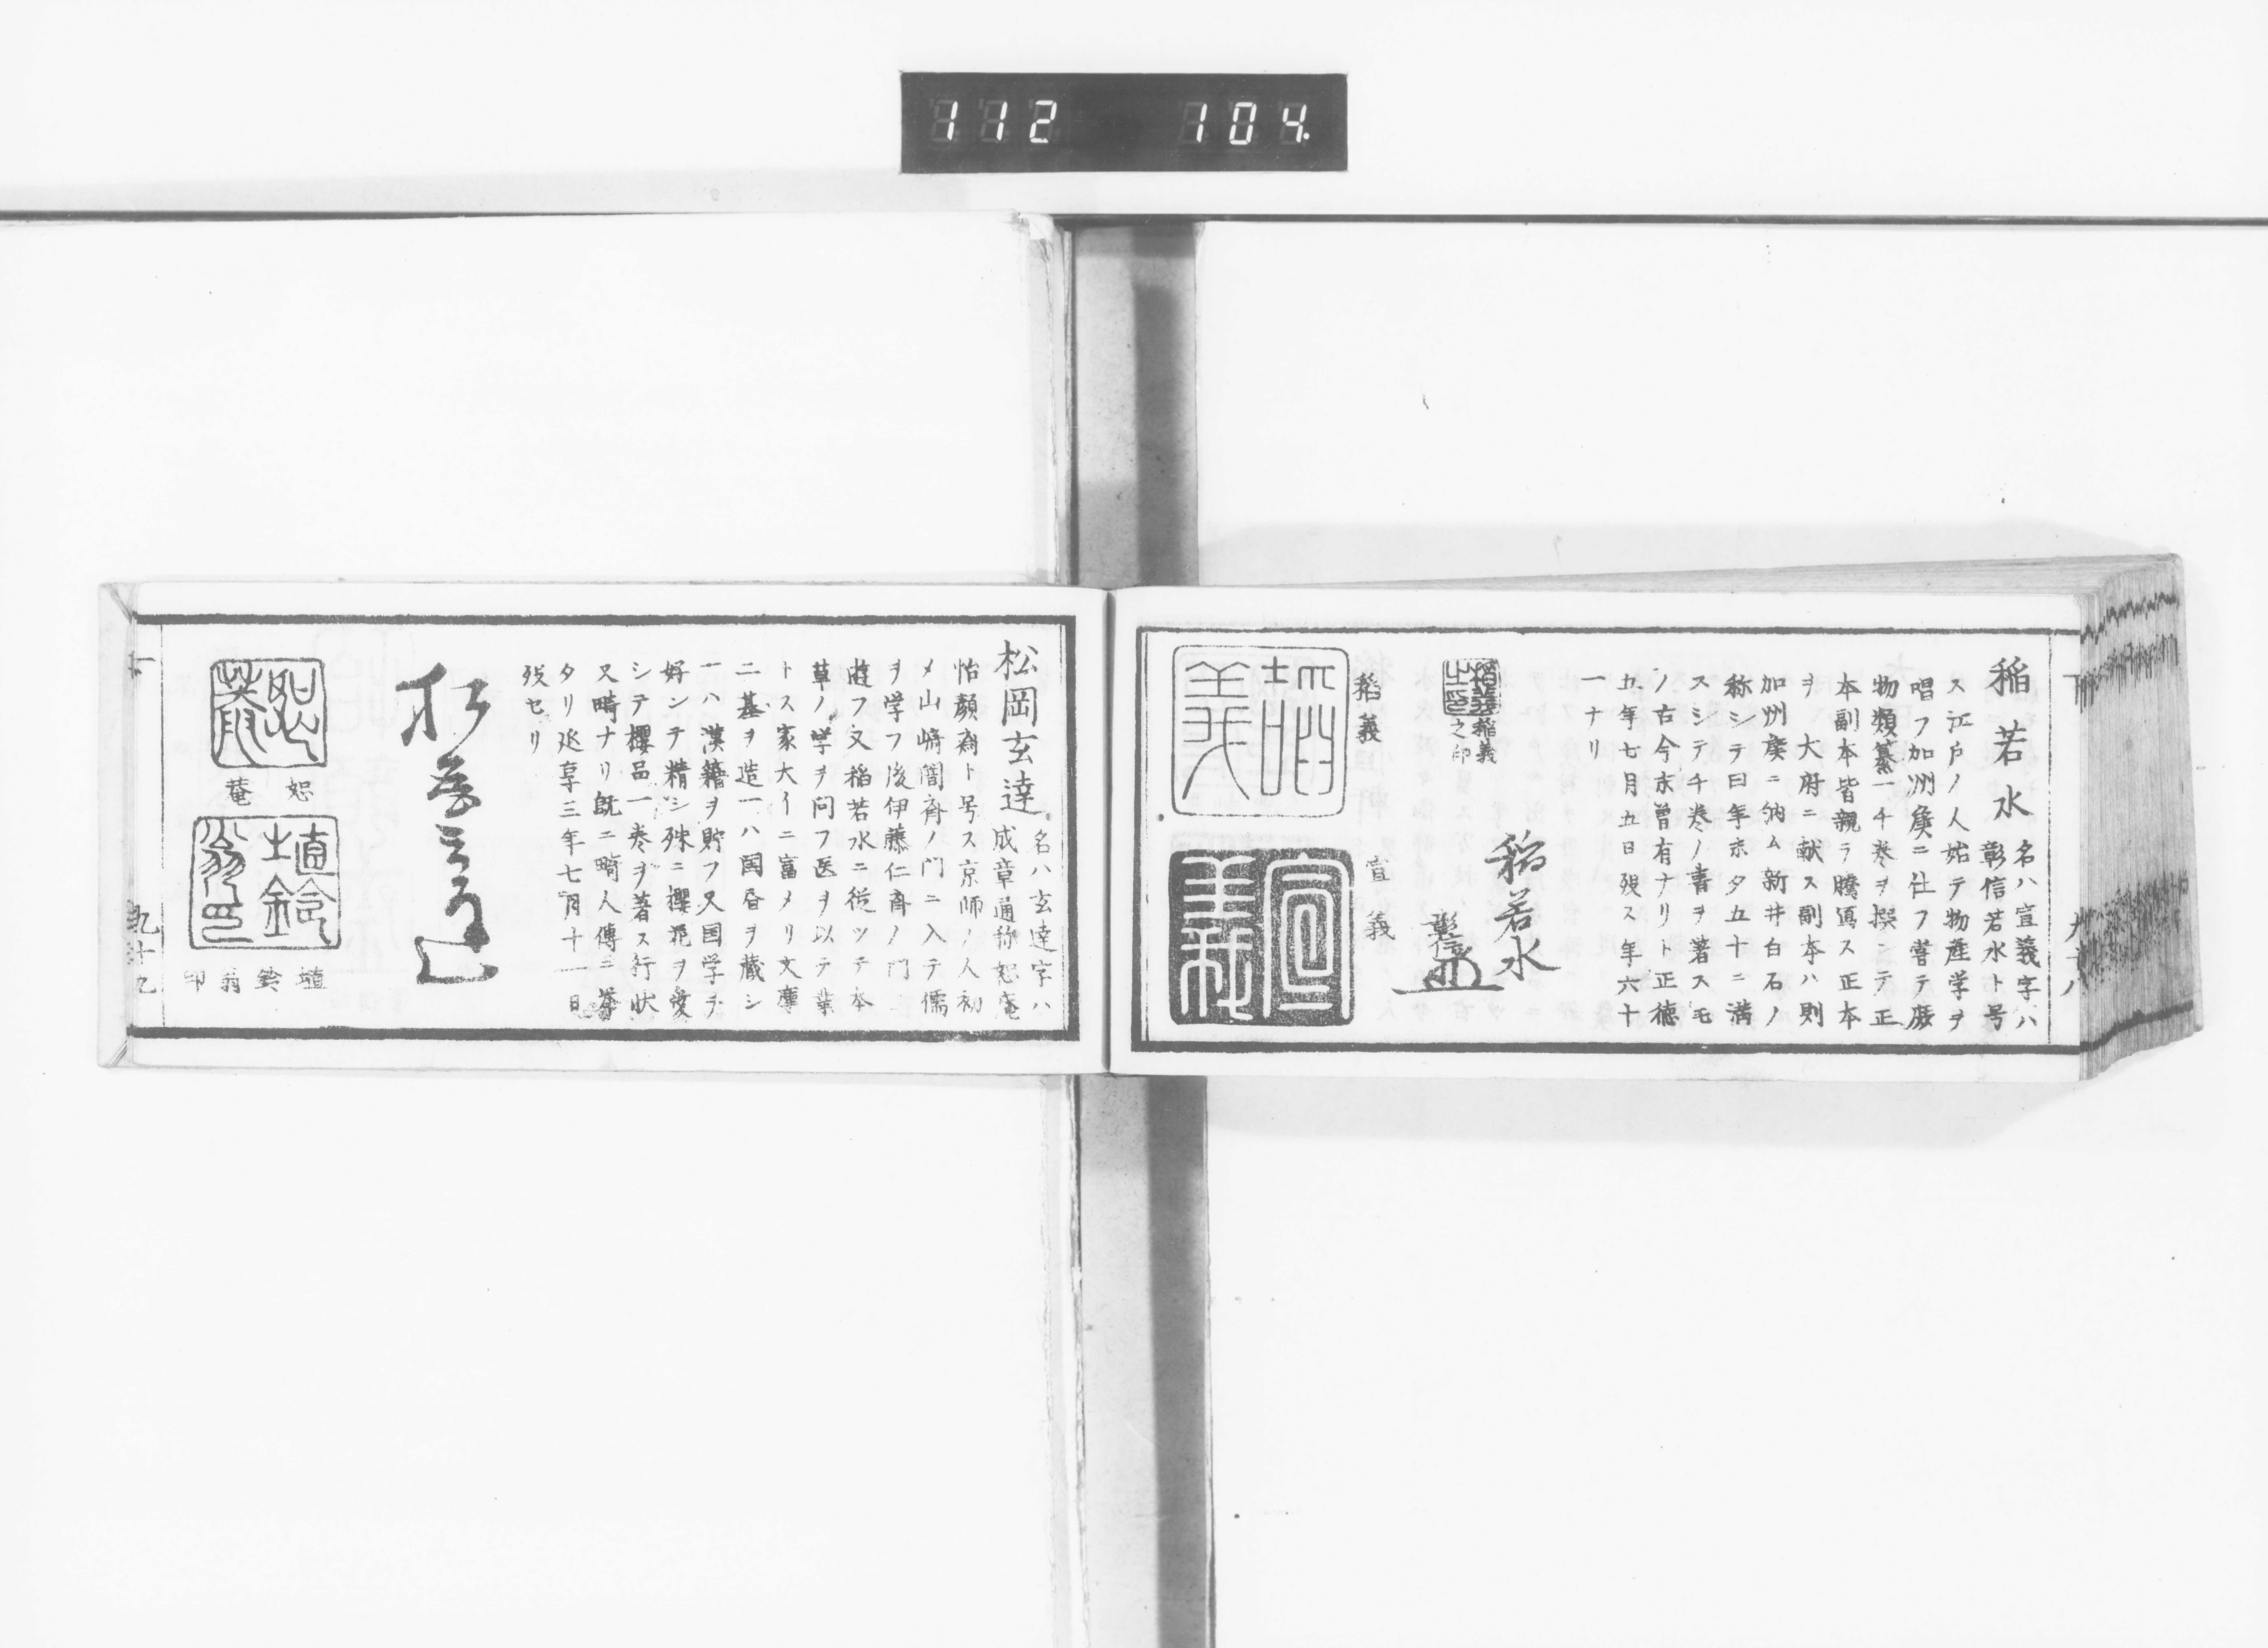 112 104.
稲若水
名ハ宣義字ハ
彰信若水ト号
ス江戸ノ人始テ物産学ヲ
唱フ加州矦ニ仕フ嘗テ
物類纂一千巻ヲ撰ンテ正
本副本皆親ラ謄冩ス正本
ヲ大府ニ献ス副本ハ則
加州矦ニ納ム新井白石ノ
称シテ曰年未タ五十ニ満
スシテ千巻ノ書ヲ著スモ
ノ古今未曽有ナリト正徳
五年七月五日殁ス年六十
一ナリ
稲若水
稲義之印
稲義
稲義之印
稲義
稲義
宣義
宣義
九十八
松岡玄達
名ハ玄達字ハ
成章通称恕庵
怡顔斎ト号ス京師ノ人初
メ山﨑闇斉ノ門ニ入テ儒
ヲ学フ後伊藤仁斉ノ門ニ
遊フ又稲若水ニ従ツテ本
草ノ学ヲ問フ医ヲ以テ業
トス家大イニ富メリ文庫
二基ヲ造一ハ国書ヲ蔵シ
一ハ漢籍ヲ貯フ又国学ヲ
好ンテ精シ殊ニ櫻花ヲ愛
シテ櫻品一巻ヲ著ス行状
又畸ナリ既ニ畸人傳ニ挙
タリ延享三年七月十一日
殁セリ
松岡玄達
恕菴
恕菴
埴鈴翁印
埴鈴翁印
九十九